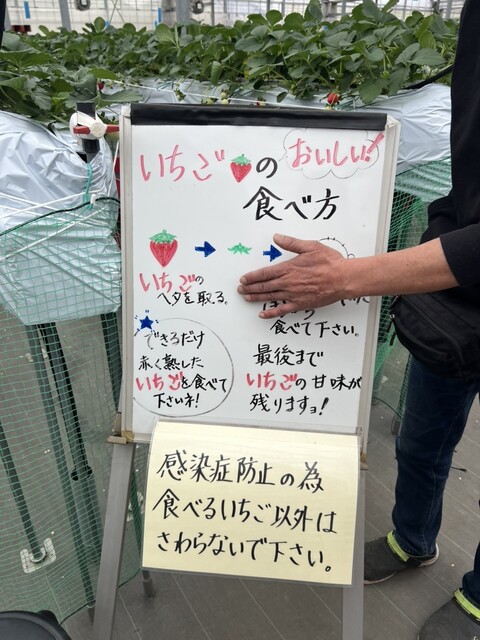 いちごの
おいしい!
食べ方
いちごの
ヘタを取る。
食べて下さい。
できるだけ
赤く熟した
いちごを食べて
下さいネ!
最後まで
いちごの甘味が
残りますョ!
感染症防止の為
食べるいちご以外は
さわらないで下さい。